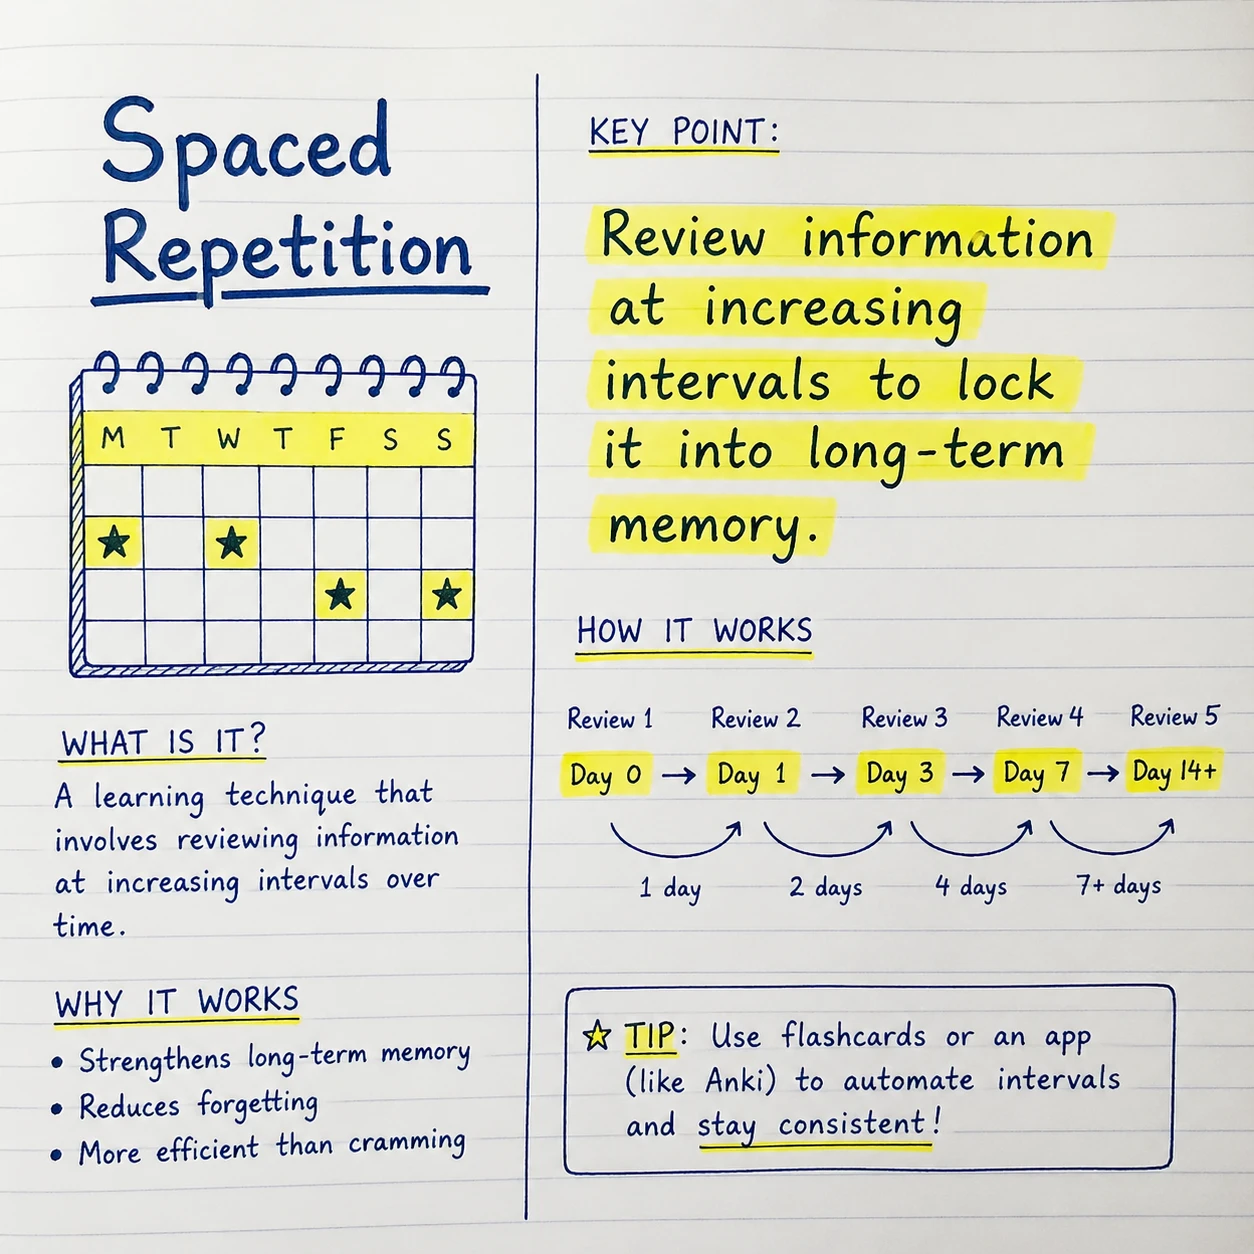 Spaced
Repetition
M T W T F S S
WHAT IS IT?
A learning technique that
involves reviewing information
at increasing intervals over
time.
WHY IT WORKS
• Strengthens long-term memory
• Reduces forgetting
• More efficient than cramming
KEY POINT:
Review information
at increasing
intervals to lock
it into long-term
memory.
HOW IT WORKS
Review 1 Review 2 Review 3 Review 4 Review 5
Day 0 → Day 1 → Day 3 → Day 7 → Day 14+
1 day 2 days 4 days 7+ days
☆ TIP: Use flashcards or an app
(like Anki) to automate intervals
and stay consistent!